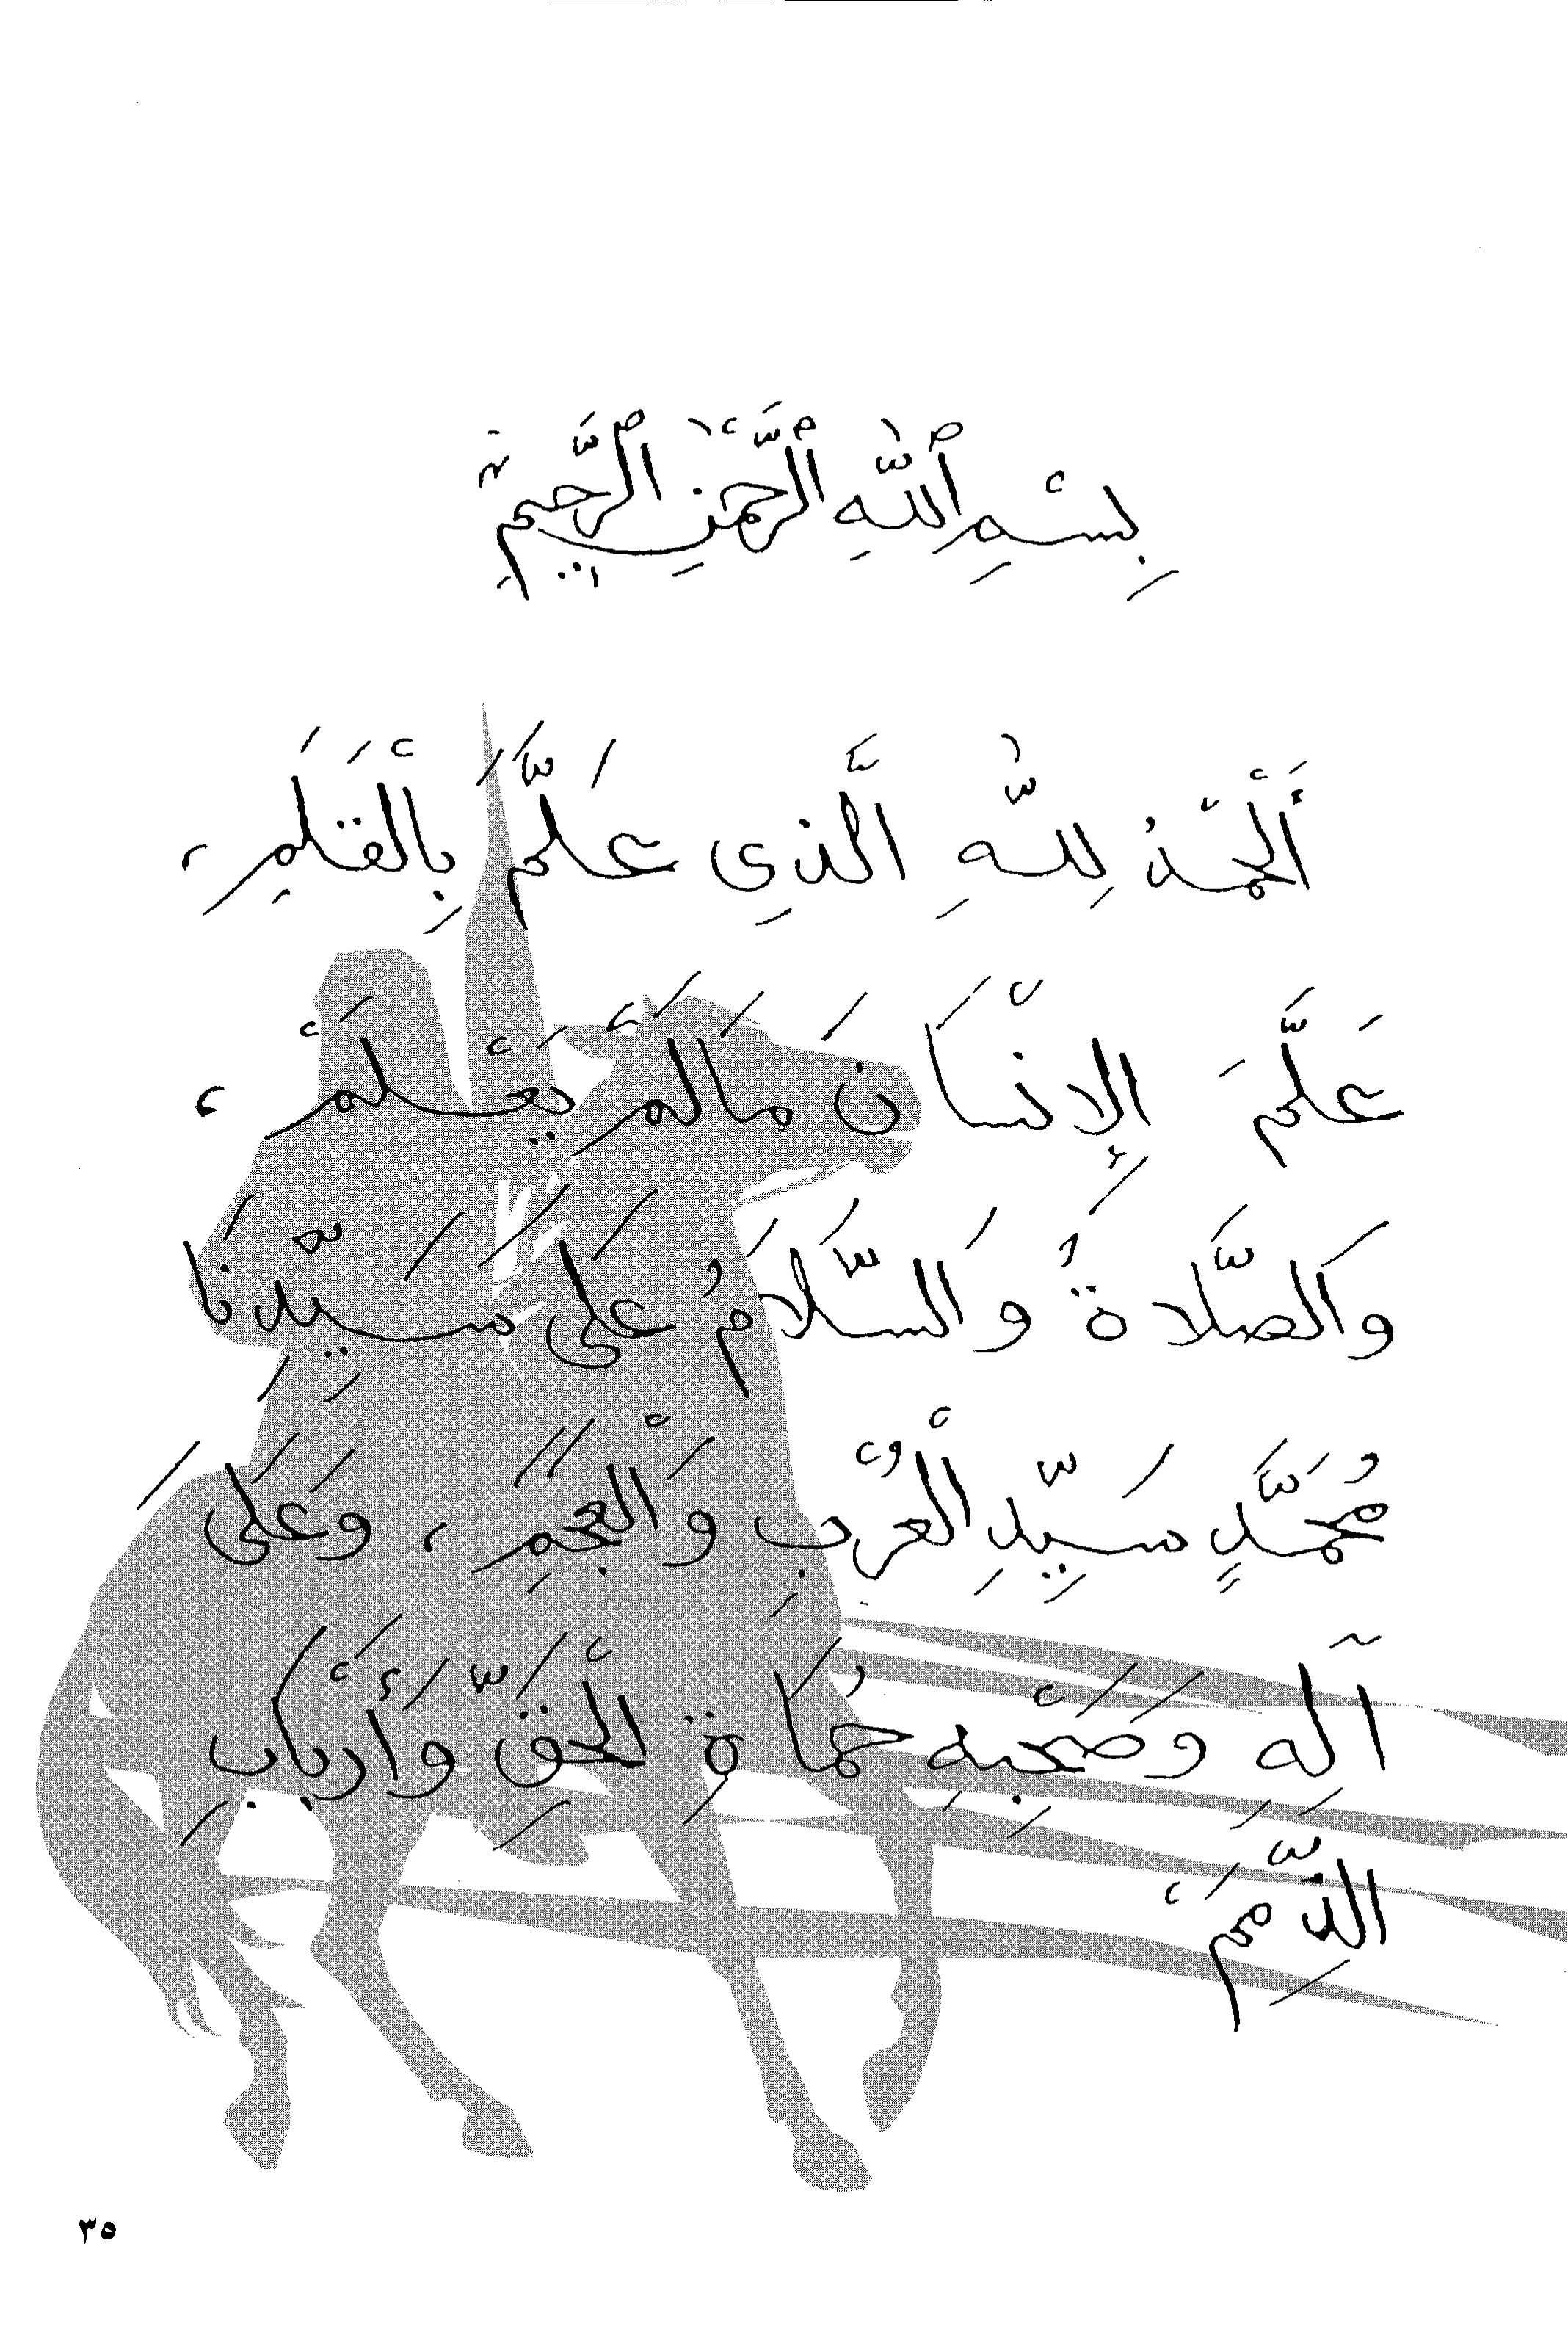 بِسْمِ ٱللَّهِ ٱلرَّحْمَٰنِ ٱلرَّحِيمِ
أَلْحَمْدُ لِلَّهِ الَّذِي عَلَّمَ بِالْقَلَمِ،
عَلَّمَ الإِنْسَانَ مَا لَمْ يَعْلَمْ،
وَالصَّلَاةُ وَالسَّلَامُ عَلَى سَيِّدِنَا
مُحَمَّدٍ سَيِّدِ الْعُرْبِ وَالْعَجَمِ، وَعَلَى
آلِهِ وَصَحْبِهِ حُمَاةِ الْحَقِّ وَأَرْبَابِ
الذِّمَمْ
٣٥